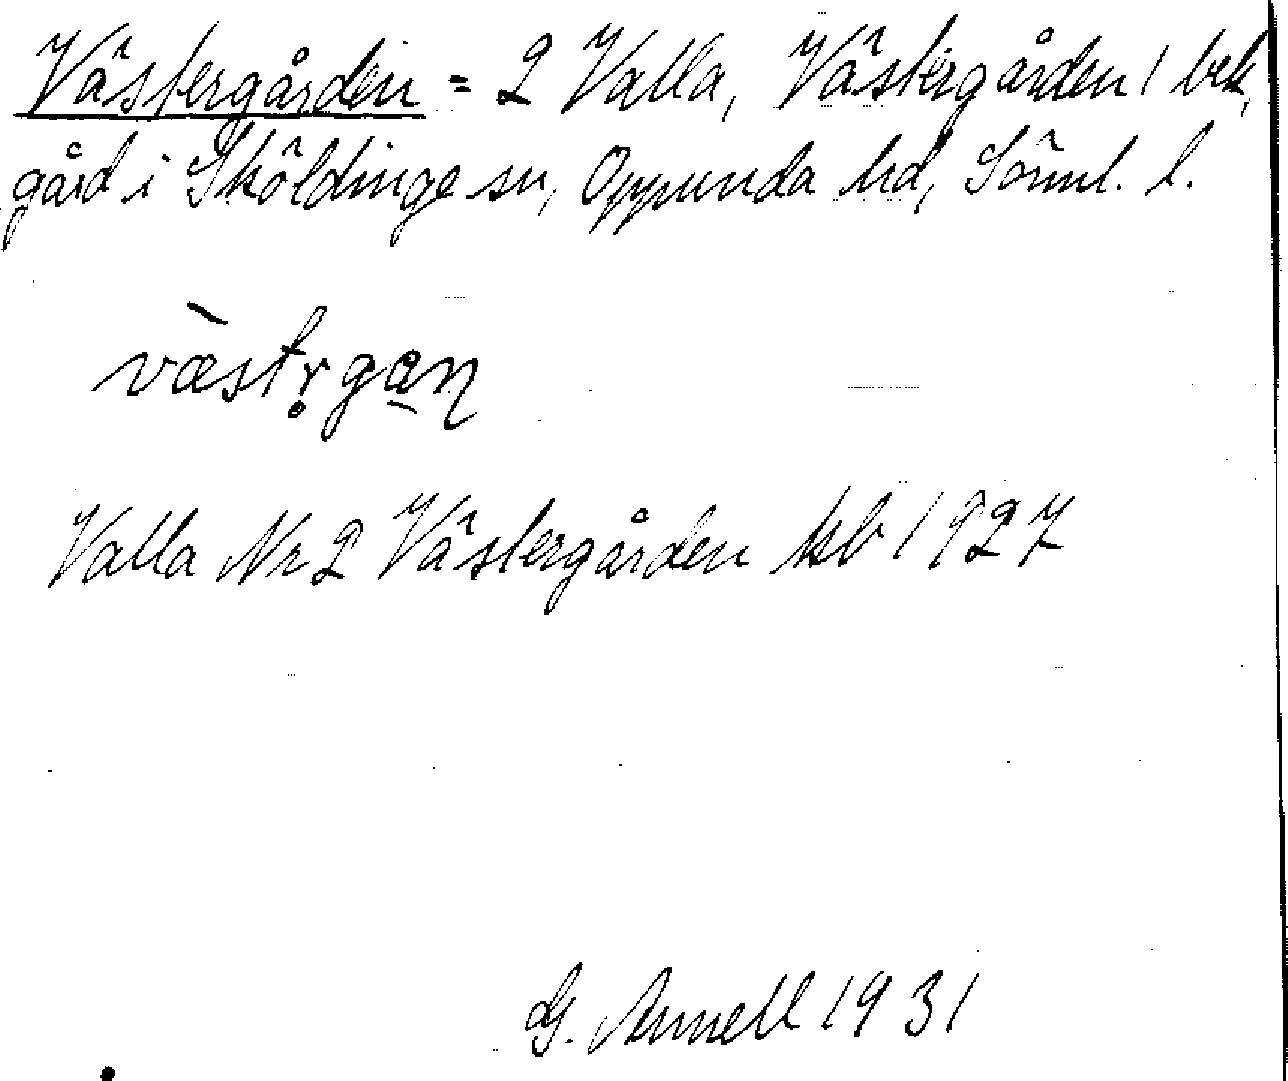 Västergården = 2 Valla, Västergården / bek,
gård i Sköldinge sn, Oppunda hd, Söml. l.
væ̀str̥ga̠ɳ
Valla Nr 2 Västergården kb 1927
G. Annell 1931